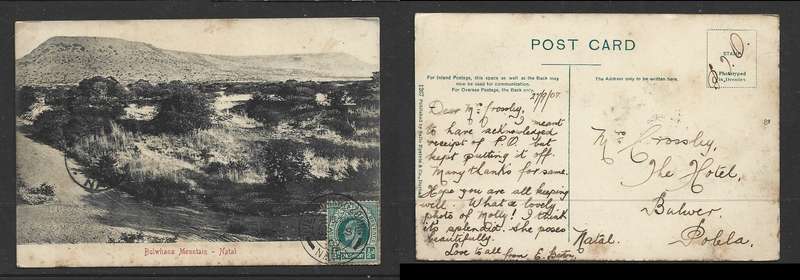 Bulwhana Mountain - Natal
POST CARD
For Inland Postage, this space as well as the Back may
now be used for communication.
For Oversea Postage, the Back only.
The Address only to be written here.
STAMP
Phototyped
in Dresden
27/9/07
Dear Mrs Crossley,
I meant
to have acknowledged
receipt of P.O. but
kept putting it off.
Many thanks for same.
Hope you are all keeping
well. What a lovely
photo of Molly! I think
it's splendid. She poses
beautifully.
Love to all from E.
Mrs Crossley
The Hotel,
Bulwer
Natal. Polela